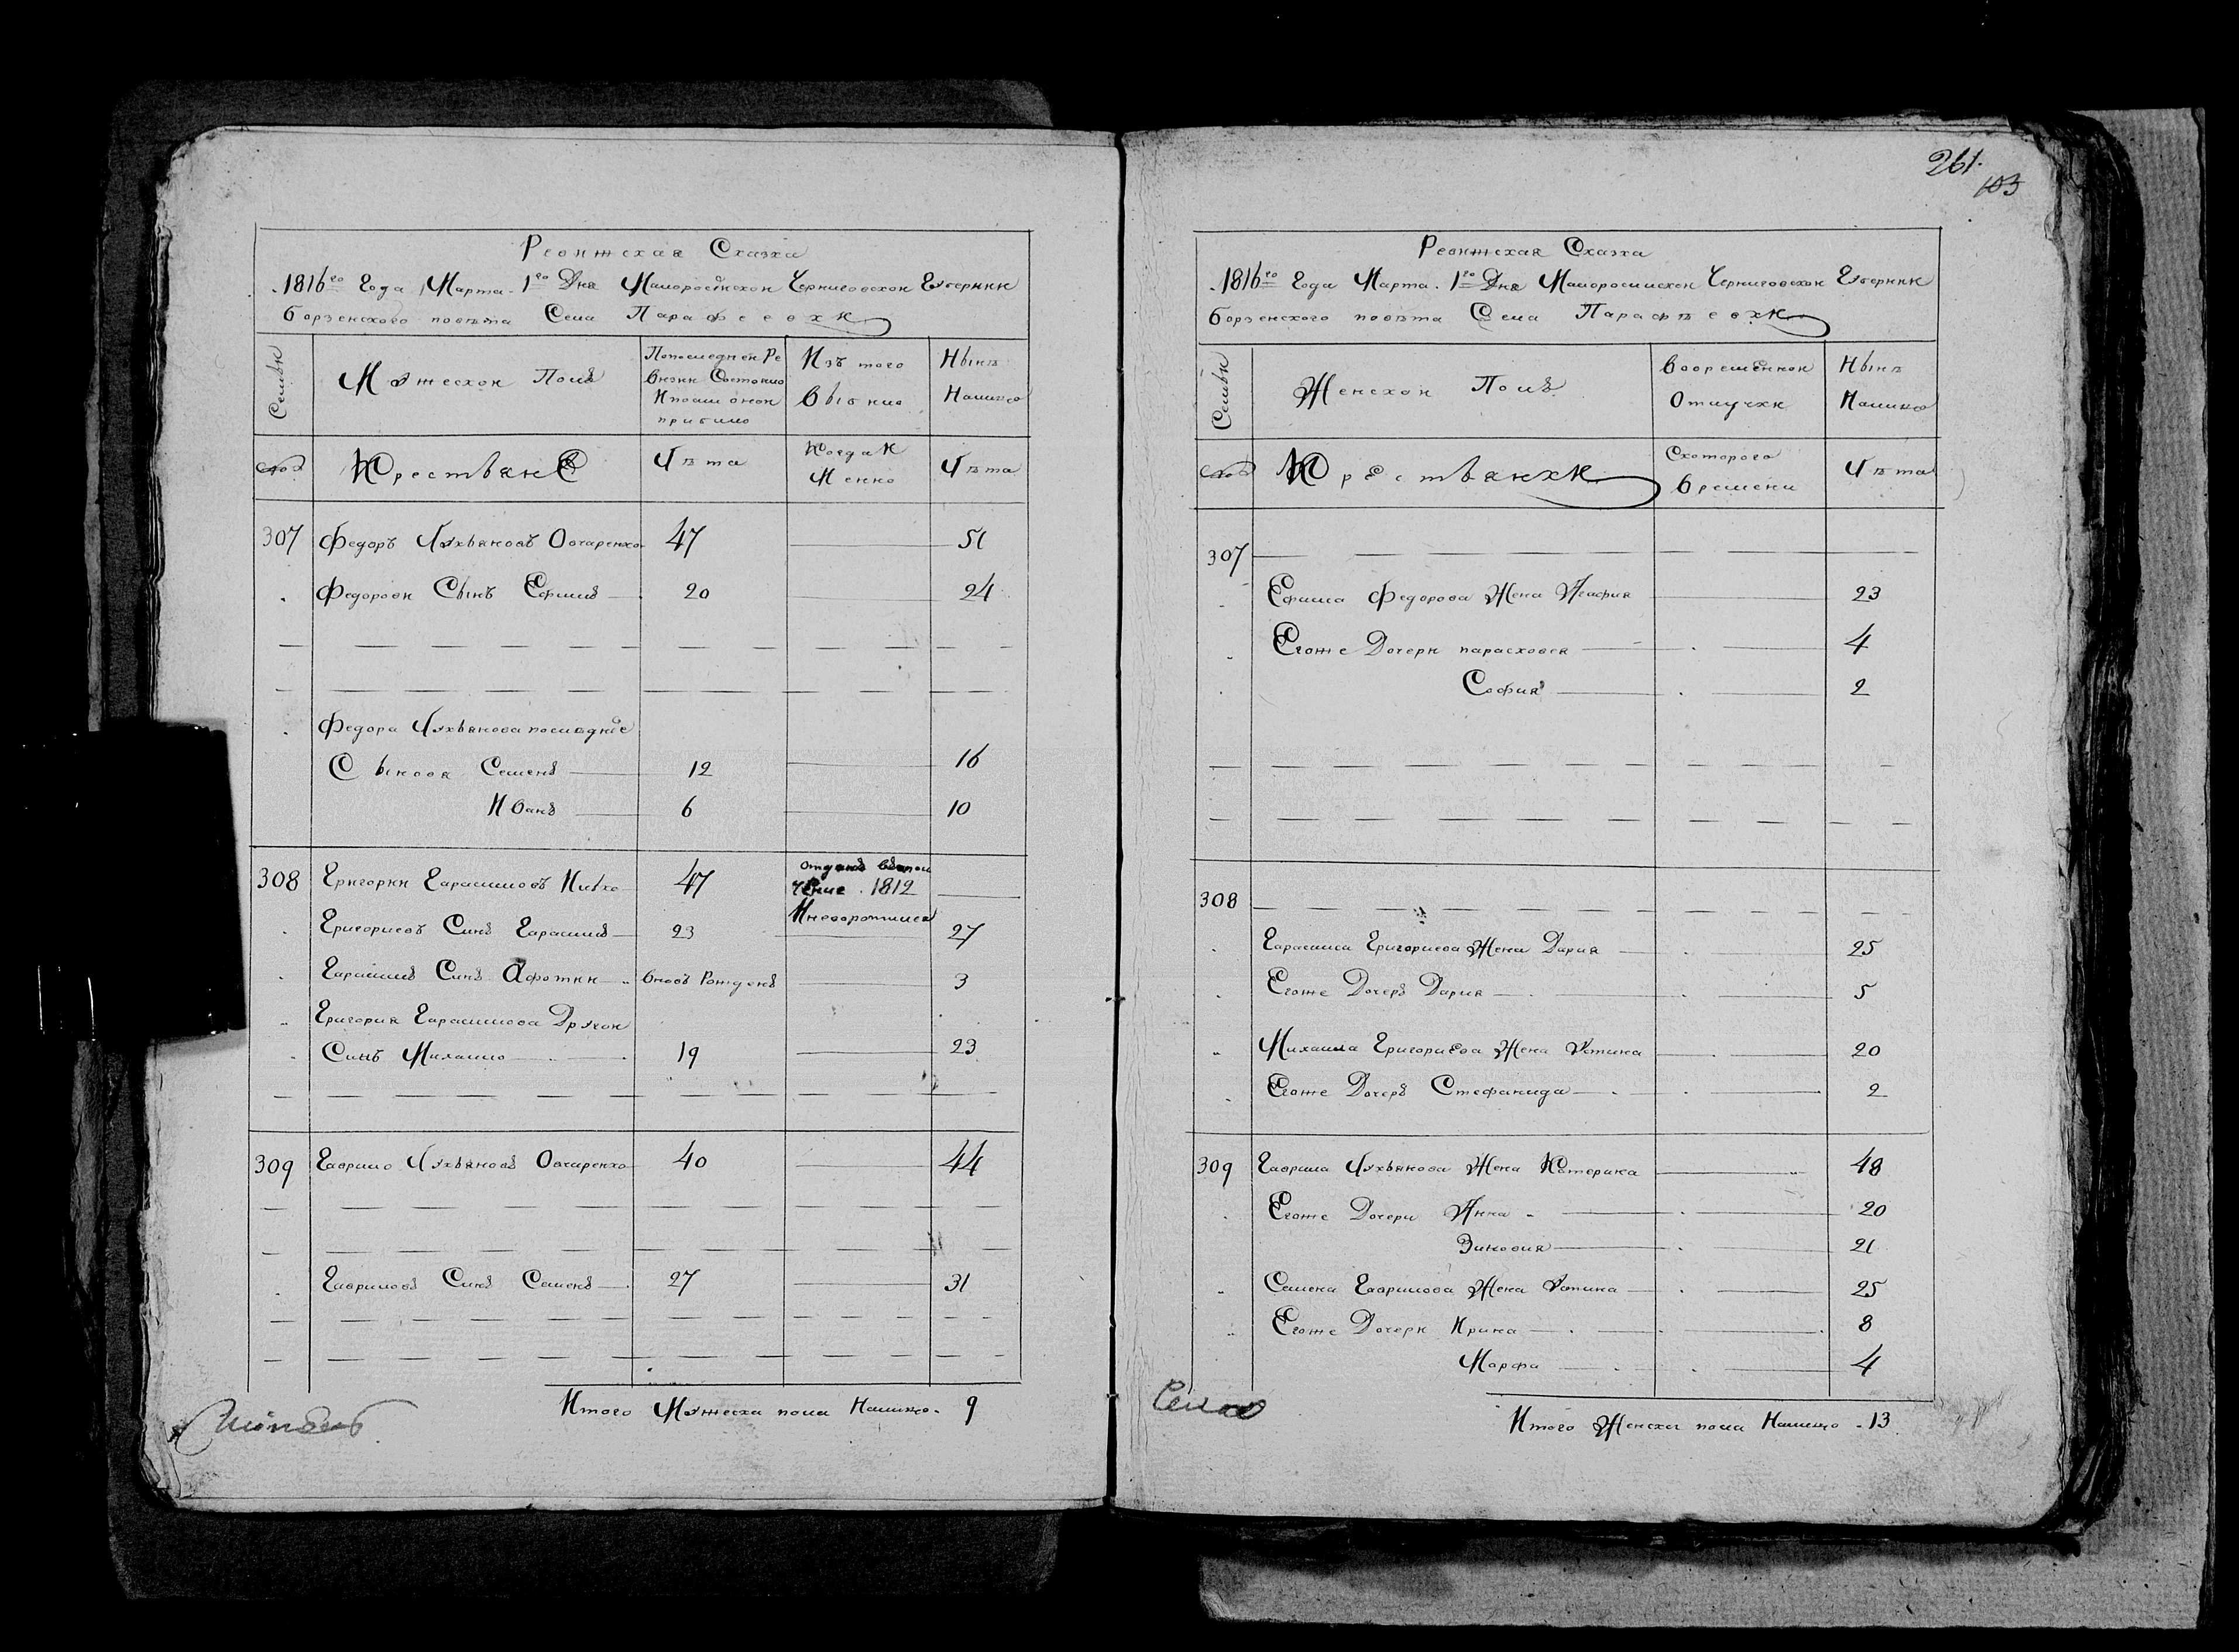 Ревижская Сказка
1816го Года Марта 1го Дня Малоросійской Черниговской Губернии
Борзенского повѣта Села Парафеевки
Семьи
Мужеской Полъ
По последней Ре
визии Состояло
И после оной
прибыло
Изъ того
Выбыло
Нынѣ
Налицо
Крестьяне
Лѣта
Когда И
Менно
Лѣта
307 Федоръ Лукьяновъ Овчаренко 47 51
Федоровъ Сынъ Ефимъ 20 24
Федора Лукьянова последние
Сыновя Семенъ 12 16
Иванъ 6 10
308 Григорий Гарасимовъ 47 отданъ въ ополчение 1812
И невортился
Григориевъ Синъ Гарасимъ 23 27
Гарасимъ Синъ Афоткй вновъ Рожденъ 3
Григория Гарасимова Другой
Синъ Михайло 19 23
309 Гаврило Лукьяновъ Овчаренко 40 44
Гавриловъ Синъ Семенъ 27 31
Итого Мужеска пола Налицо 9
261
103
Ревижская Сказка
1816го Года Марта 1го Дня Малоросииской Черниговской Губернии
Борзенского повѣта Села Парафѣевки
Семьи
Женской Полъ
Вовременной
Отлучки
Нынѣ
Налицо
Крестьянки
С которого
Времени
Лѣта
307
Ефима Федорова Жена Агафия 23
Егоже Дочери парасковея 4
София 2
308
Гарасима Григориева Жена Дария 25
Егоже Дочеръ Дария 5
Михаила Григориева Жена Устина 20
Егоже Дочеръ Стефанида 2
309 Гаврила Лукьянова Жена Катерина 48
Егоже Дочери Анна 20
Зиновия 21
Семена Гаврилова Жена Устина 25
Егоже Дочери Ирина 8
Марфа 4
Села
Итого Женска пола Налицо 13